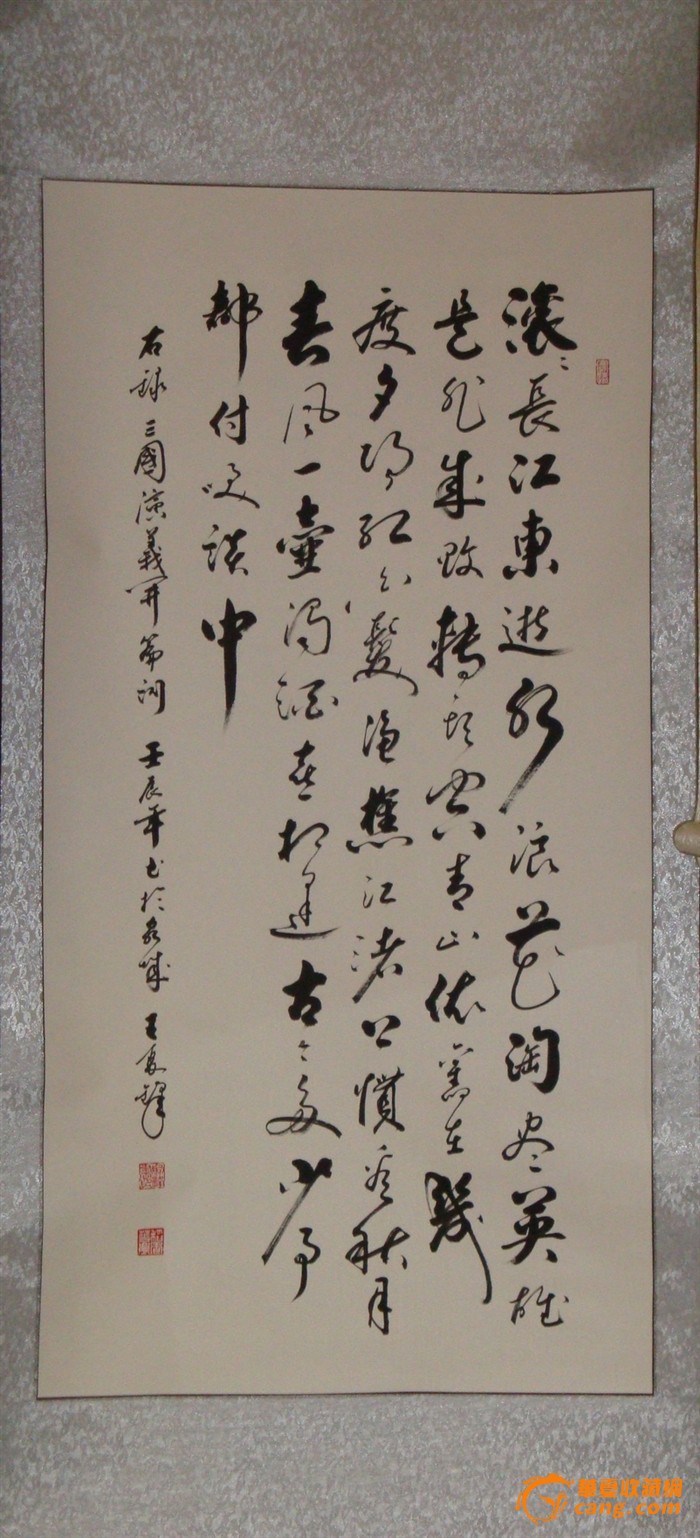 滚〻長江東逝水浪花淘尽英雄
是非成敗轉頭空青山依舊在幾
度夕阳红白髮渔樵江渚上慣看秋月
春风一壺浊酒喜相逢古今多少事
都付笑談中
右録三國演義开篇词 壬辰年书於泉城 王
華夏收藏網
cang.com